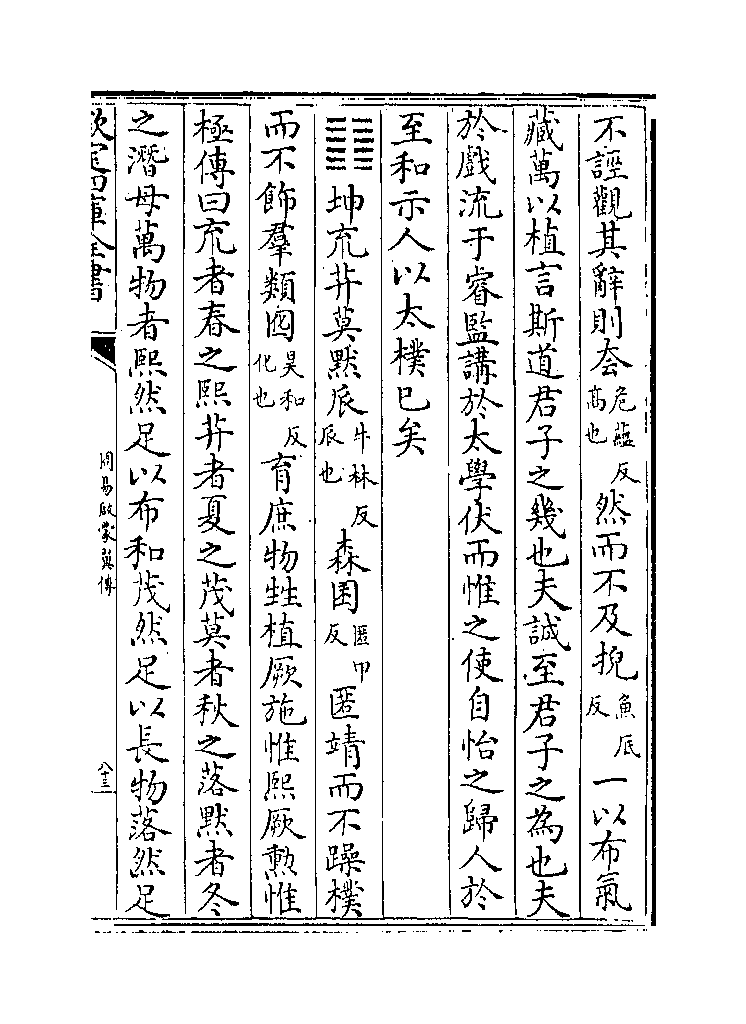 不誣觀其辭則厺危蘊反高也然而不及掜魚底反一以布氣
藏萬以植言斯道君子之幾也夫誠至君子之為也夫
於戲流于睿監講於太學伏而惟之使自怡之歸人於
至和示人以太樸已矣
䷁坤㐬莽莫默𠂢牛林反𠂢也森囷匿卬反匿靖而不躁樸
而不飾羣類囮昊和反化也育庶物甡植厥施惟熙厥勲惟
極傳曰㐬者春之熙莽者夏之茂莫者秋之落默者冬
之潛母萬物者熙然足以布和茂然足以長物落然足
欽定四庫全書
周易啟蒙翼傳
八十三